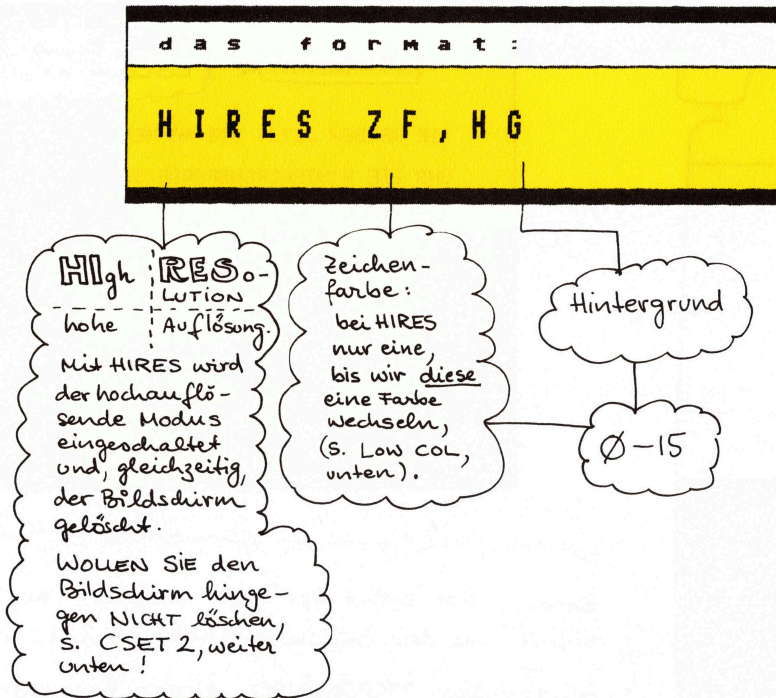 das format:
HIRES ZF,HG
HIgh RESo-
LUTION
hohe Auflösung.
Mit HIRES wird
der hochauflö-
sende Modus
eingeschaltet
und, gleichzeitig,
der Bildschirm
gelöscht.
WOLLEN SIE den
Bildschirm hinge-
gen NICHT löschen,
s. CSET 2, weiter
unten!
Zeichen-
farbe:
bei HIRES
nur eine,
bis wir diese
eine Farbe
wechseln,
(s. LOW COL,
unten).
Hintergrund
Ø-15